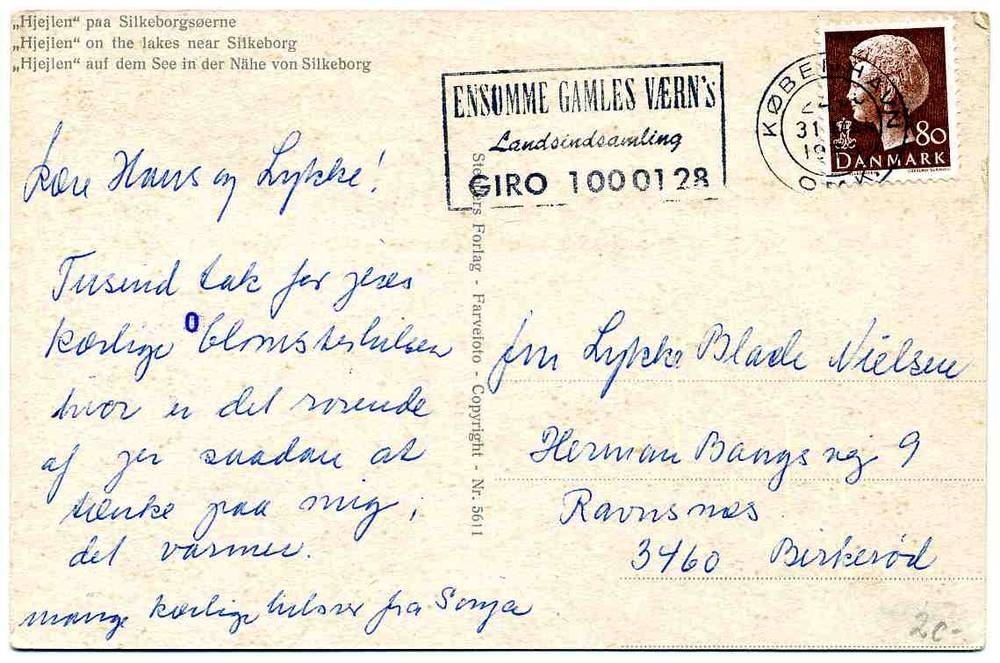 „Hjejlen“ paa Silkeborgsøerne
„Hjejlen“ on the lakes near Silkeborg
„Hjejlen“ auf dem See in der Nähe von Silkeborg
ENSOMME GAMLES VÆRN's
Landsindsamling
GIRO 1000128
KØBENHAVN
31
19
OMK
80
DANMARK
Kære Hans og Lykke!
Tusind tak for jeres
kærlige blomsterhilsen
hvor er det rørende
af jer saadan at
tænke paa mig,
det varmer.
mange kærlige hilsner fra Sonja
0
Forlag - Farvefoto - Copyright - Nr. 5611
Fru Lykke Blade Nielsen
Herman Bangs vej 9
Ravnsnæs
3460 Birkerød
20-